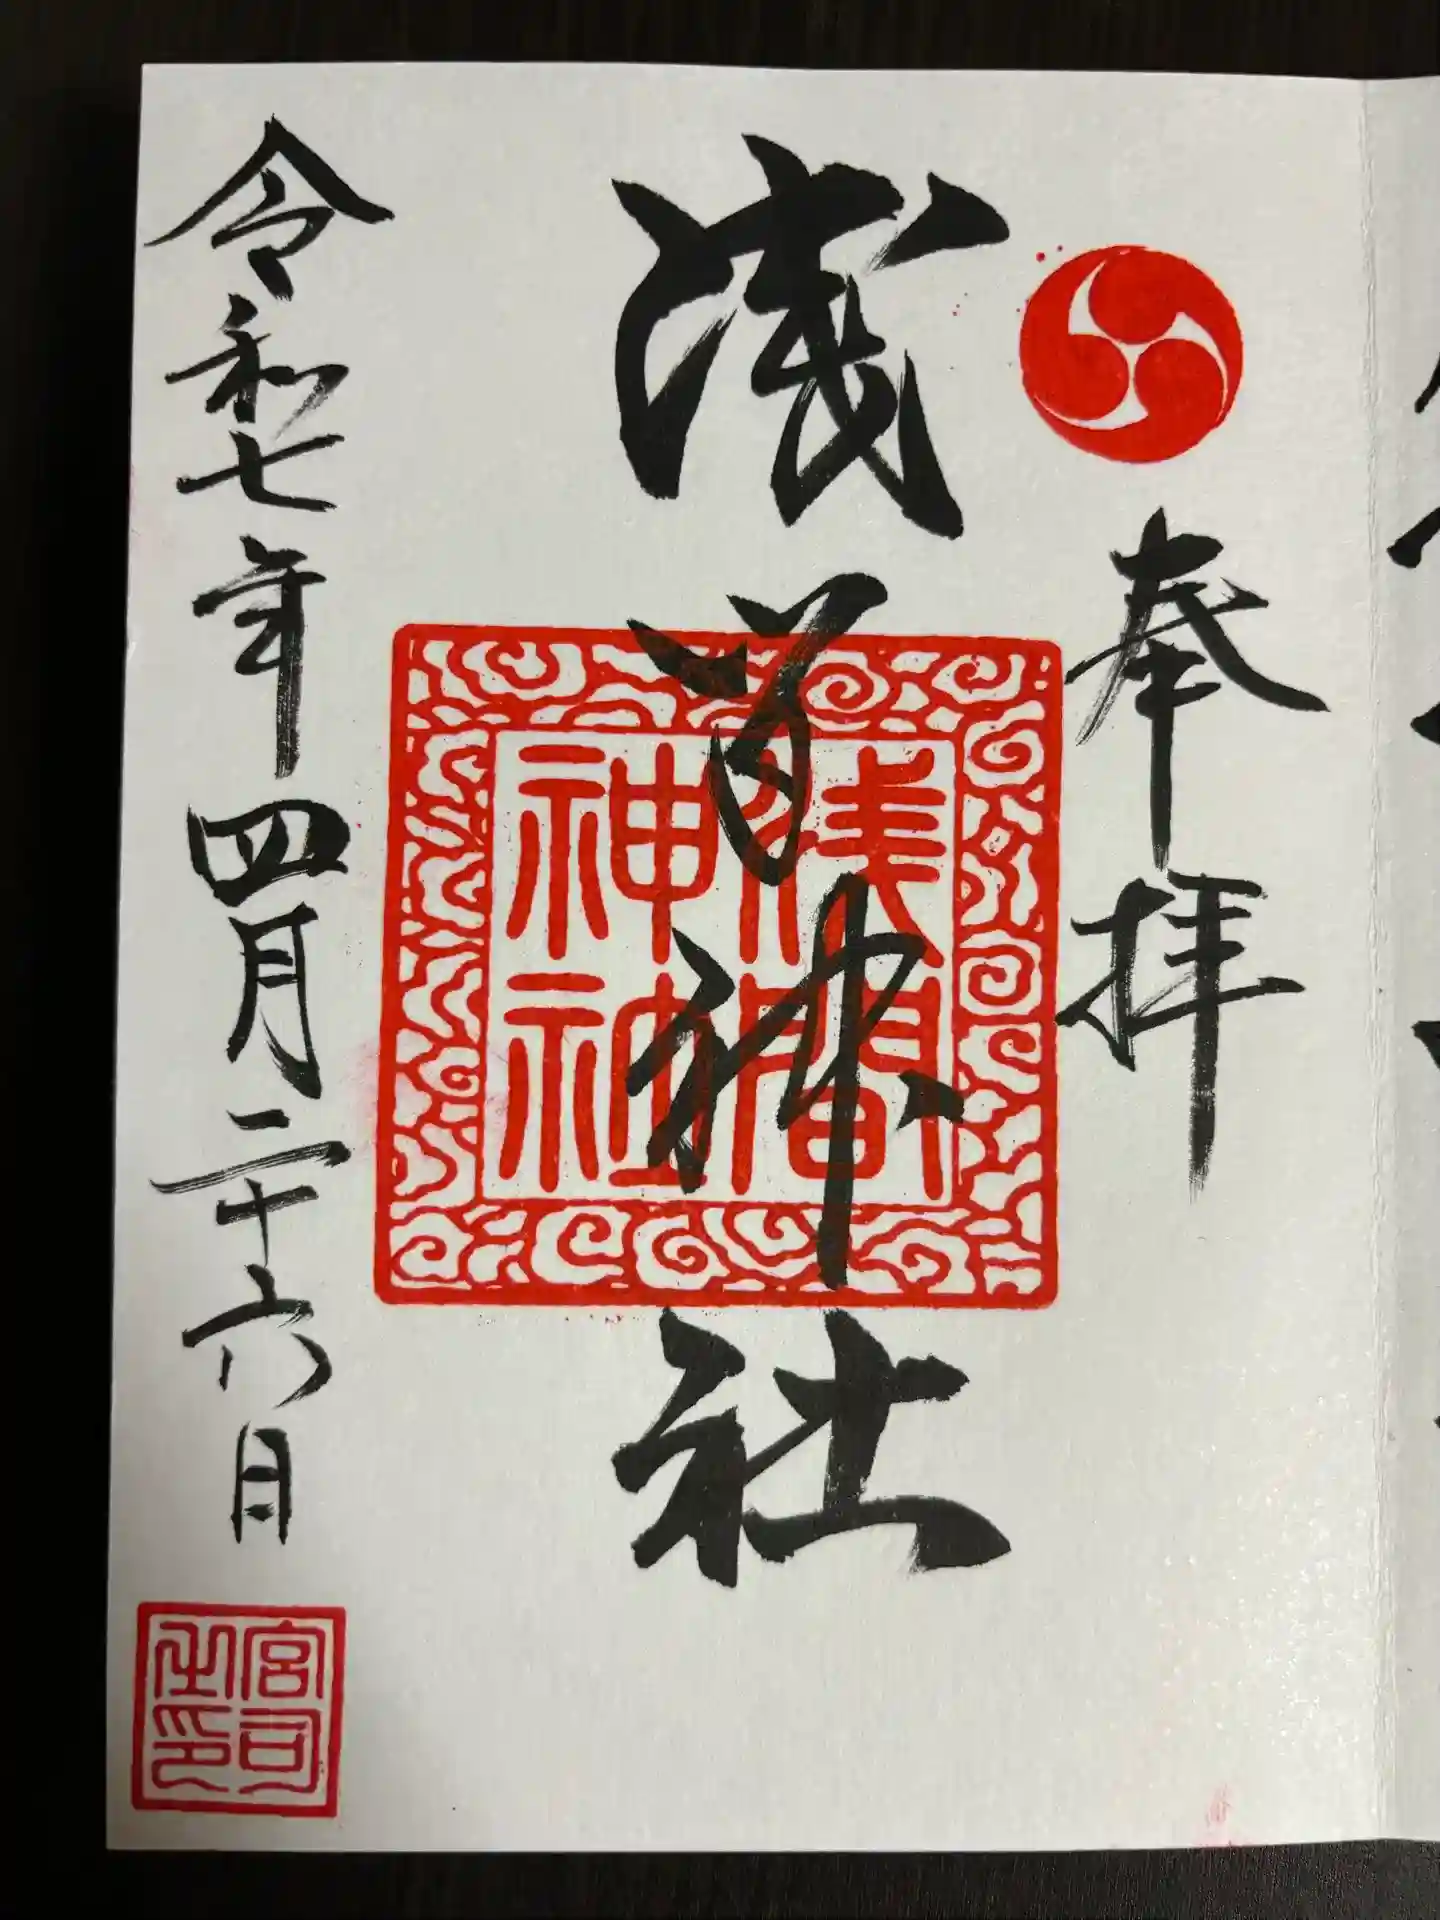 奉拝
浅間神社
浅間
神社
令和七年四月二十六日
宮司
之印